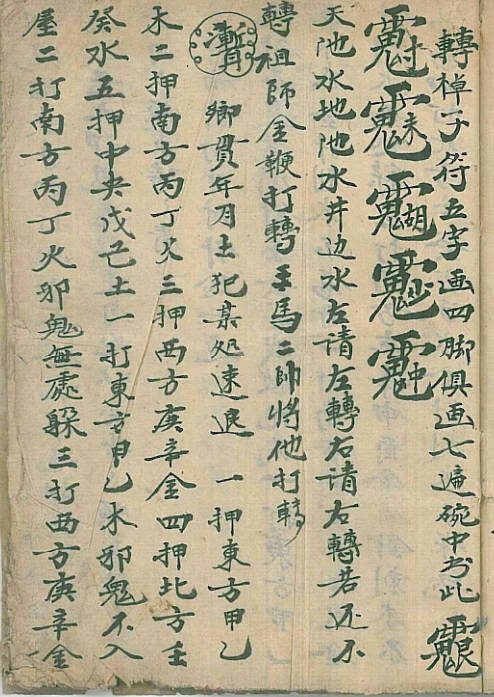 轉棹子符五字画四脚俱画七遍碗中书此
天池水地池水井边水左请左轉右请右轉若还不
轉祖師金鞭打轉王馬二帥將他打轉
鄉貫年月土犯某処速退 一押東方甲乙
木二押南方丙丁火三押西方庚辛金四押北方壬
癸水五押中央戊己土一打東方甲乙木邪鬼不入
屋二打南方丙丁火邪鬼無處躲三打西方庚辛金